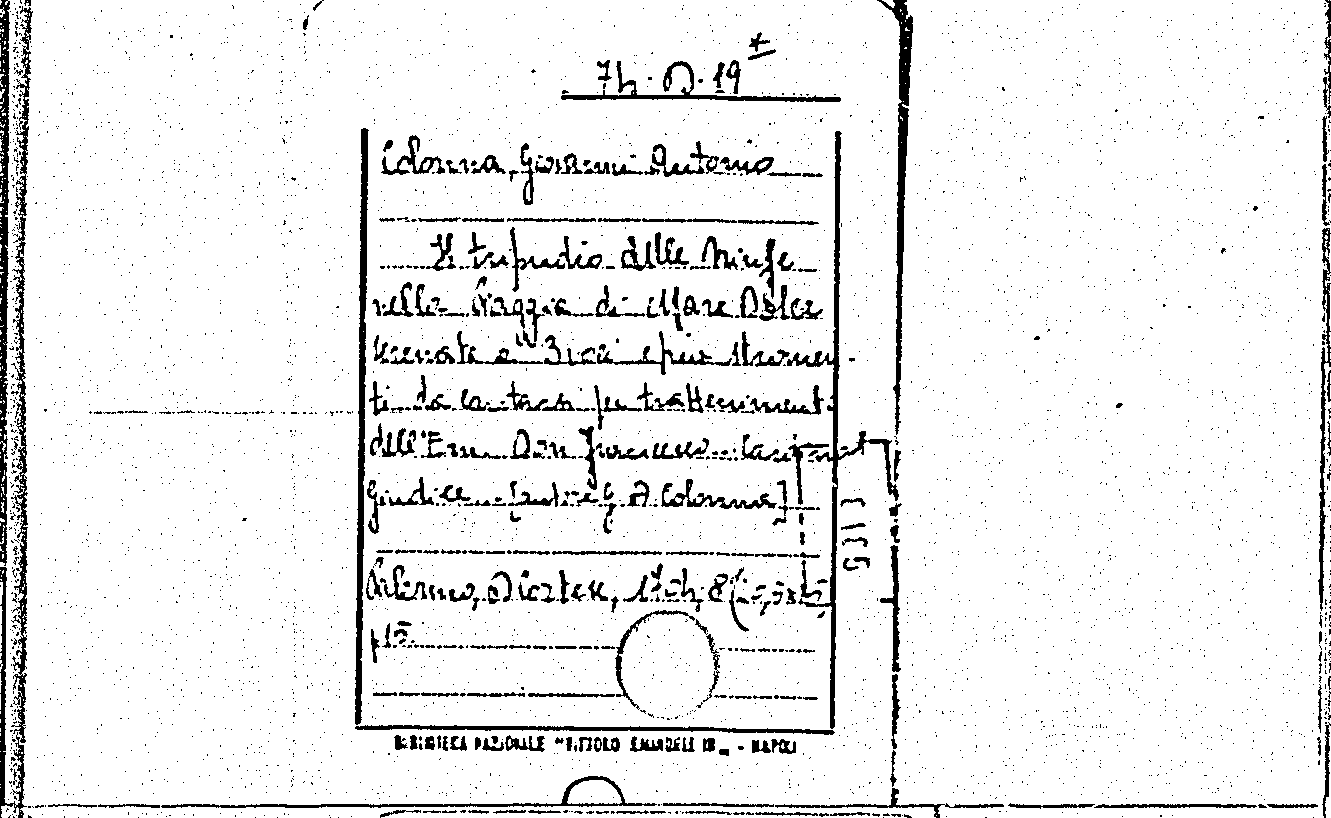 74. D. 19
Colonna, Giovanni Antonio
Il tripudio delle Ninfe
nella Piaggia di Mare Dolce
Serenata a 3 voci e più strumen-
ti da cantarsi per trattenimento
dell'Em. Don Francesco Cardinal
Giudice [autore G. A. Colonna]
Palermo, A Cortese, 1704, 8
p 15.
BIBLIOTECA NAZIONALE "VITTORIO EMANUELE III" - NAPOLI